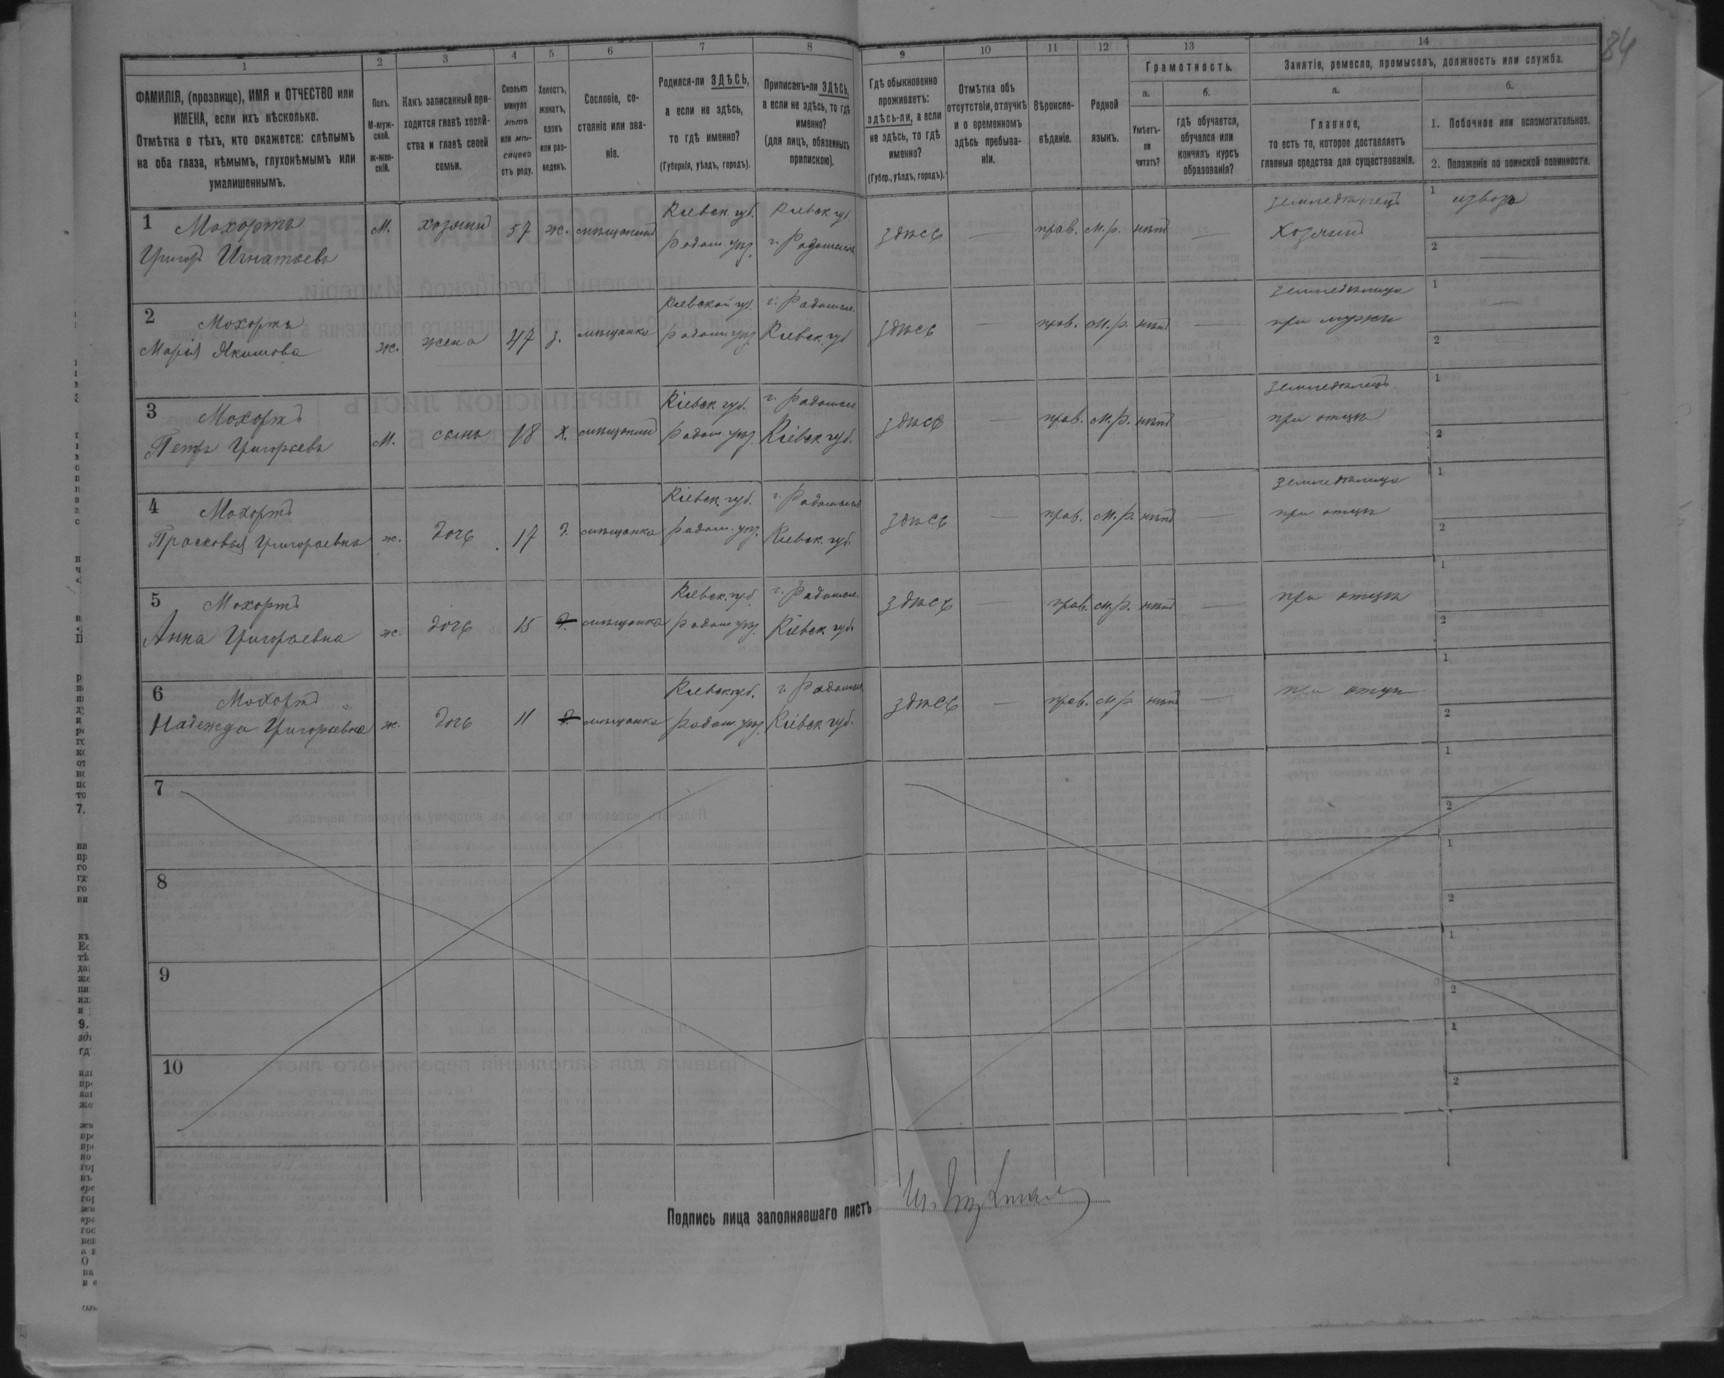 84
1
2
3
4
5
6
7
8
9
10
11
12
13
14
ФАМИЛІЯ, (прозвище), ИМЯ и ОТЧЕСТВО или
ИМЕНА, если ихъ нѣсколько.
Отмѣтка о тѣхъ, кто окажется: слѣпымъ
на оба глаза, нѣмымъ, глухонѣмымъ или
умалишеннымъ.
Полъ.
М-муж-
ской.
ж-жен-
скій.
Какъ записанный при-
ходится главѣ хозяй-
ства и главѣ своей
семьи.
Сколько
минуло
лѣтъ
или мѣ-
сяцевъ
отъ роду.
Холостъ,
женатъ,
вдовъ
или раз-
веденъ.
Сословіе, со-
стояніе или зва-
ніе.
Родился-ли ЗДѢСЬ,
а если не здѣсь,
то гдѣ именно?
(Губернія, уѣздъ, городъ).
Приписанъ-ли ЗДѢСЬ,
а если не здѣсь, то гдѣ
именно?
(для лицъ, обязанныхъ
припискою).
Гдѣ обыкновенно
проживаетъ:
здѣсь-ли, а если
не здѣсь, то гдѣ
именно?
(Губер., уѣздъ, городъ).
Отмѣтка объ
отсутствіи, отлучкѣ
и о временномъ
здѣсь пребыва-
ніи.
Вѣроиспо-
вѣданіе.
Родной
языкъ.
Грамотность.
а.
Умѣетъ-
ли
читать?
б.
гдѣ обучается,
обучался или
кончилъ курсъ
образованія?
Занятіе, ремесло, промыселъ, должность или служба.
а.
Главное,
то есть то, которое доставляетъ
главныя средства для существованія.
б.
1. Побочное или вспомогательное.
2. Положеніе по воинской повинности.
1 Мохортъ Кіевск. губ. Кіевск. губ. земледѣлецъ 1 извозъ
Григор Игнатьевъ М. хозяинъ 57 ж. мѣщанинъ Радом. уѣз. г. Радомысль здѣсь — прав. м.р. нѣтъ — хозяинъ 2 —
2 Мохортъ Кіевской губ. г. Радомысл. земледѣлица 1 —
Марія Якимова ж. жена 47 з. мѣщанка Радом. уѣз. Кіевск. губ. здѣсь — прав. м.р. нѣтъ — при мужѣ 2
3 Мохортъ Кіевск. губ. г. Радомысл. земледѣлецъ 1
Петръ Григорьевъ М. сынъ 18 х. мѣщанинъ Радом. уѣз. Кіевск. губ. здѣсь прав. м.р. нѣтъ при отцѣ 2
4 Мохортъ Кіевск. губ. г. Радомысль земледѣлица 1
Прасковья Григорьевна ж. дочь 17 д. мѣщанка Радом. уѣз. Кіевск. губ. здѣсь — прав. м.р. нѣтъ — при отцѣ 2
5 Мохортъ Кіевск. губ. г. Радомысл. 1
Анна Григорьевна ж. дочь 15 д. мѣщанка Радом. уѣз. Кіевск. губ. здѣсь — прав. м.р. нѣтъ — при отцѣ 2
6 Мохортъ Кіевск. губ. г. Радомысл 1
Надежда Григорьевна ж. дочь 11 д. мѣщанка Радом. уѣз. Кіевск. губ. здѣсь — прав. м.р. нѣтъ — при отцѣ 2
7 1
2
8 1
2
9 1
2
10 1
2
Подпись лица заполнявшаго листъ